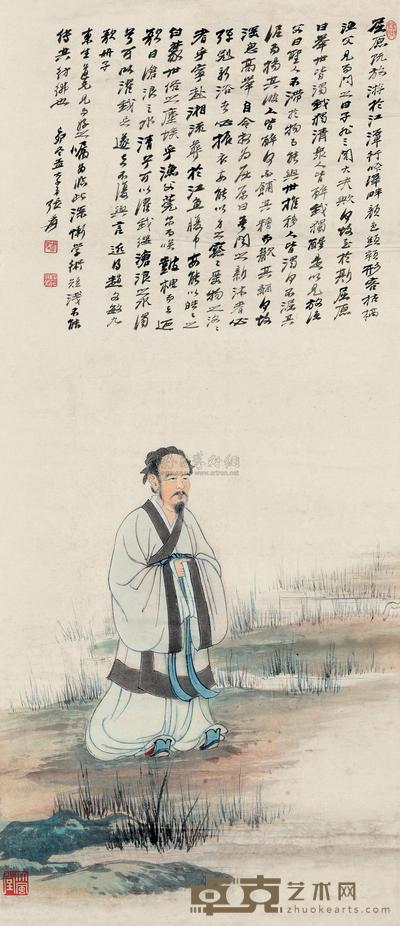 屈原既放游於江潭行吟澤畔顏色憔悴形容枯槁
漁父見而問之曰子非三閭大夫歟何故至於斯屈原
曰舉世皆濁我獨清衆人皆醉我獨醒是以見放漁
父曰聖人不滯於物而能與世推移人皆濁何不淈其
泥而揚其波人皆醉何不餔其糟而歠其醨何故
深思高舉自令放為屈原曰吾聞之新沐者必
彈冠新浴者必振衣安能以身之察察受物之汶汶
者乎寧赴湘流葬於江魚腹中安能以皓皓之
白蒙世俗之塵埃乎漁父莞尔而笑鼓枻而去乃
歌曰滄浪之水清兮可以濯我纓滄浪之水濁
兮可以濯我足遂去不復與言近得趙文敏九
歌册子
東生道兄見而悦之囑為臨此深慚學術短淺不能
傳其彷彿也 張爰
www.artron.net
卓克艺术网
zhuokearts.com